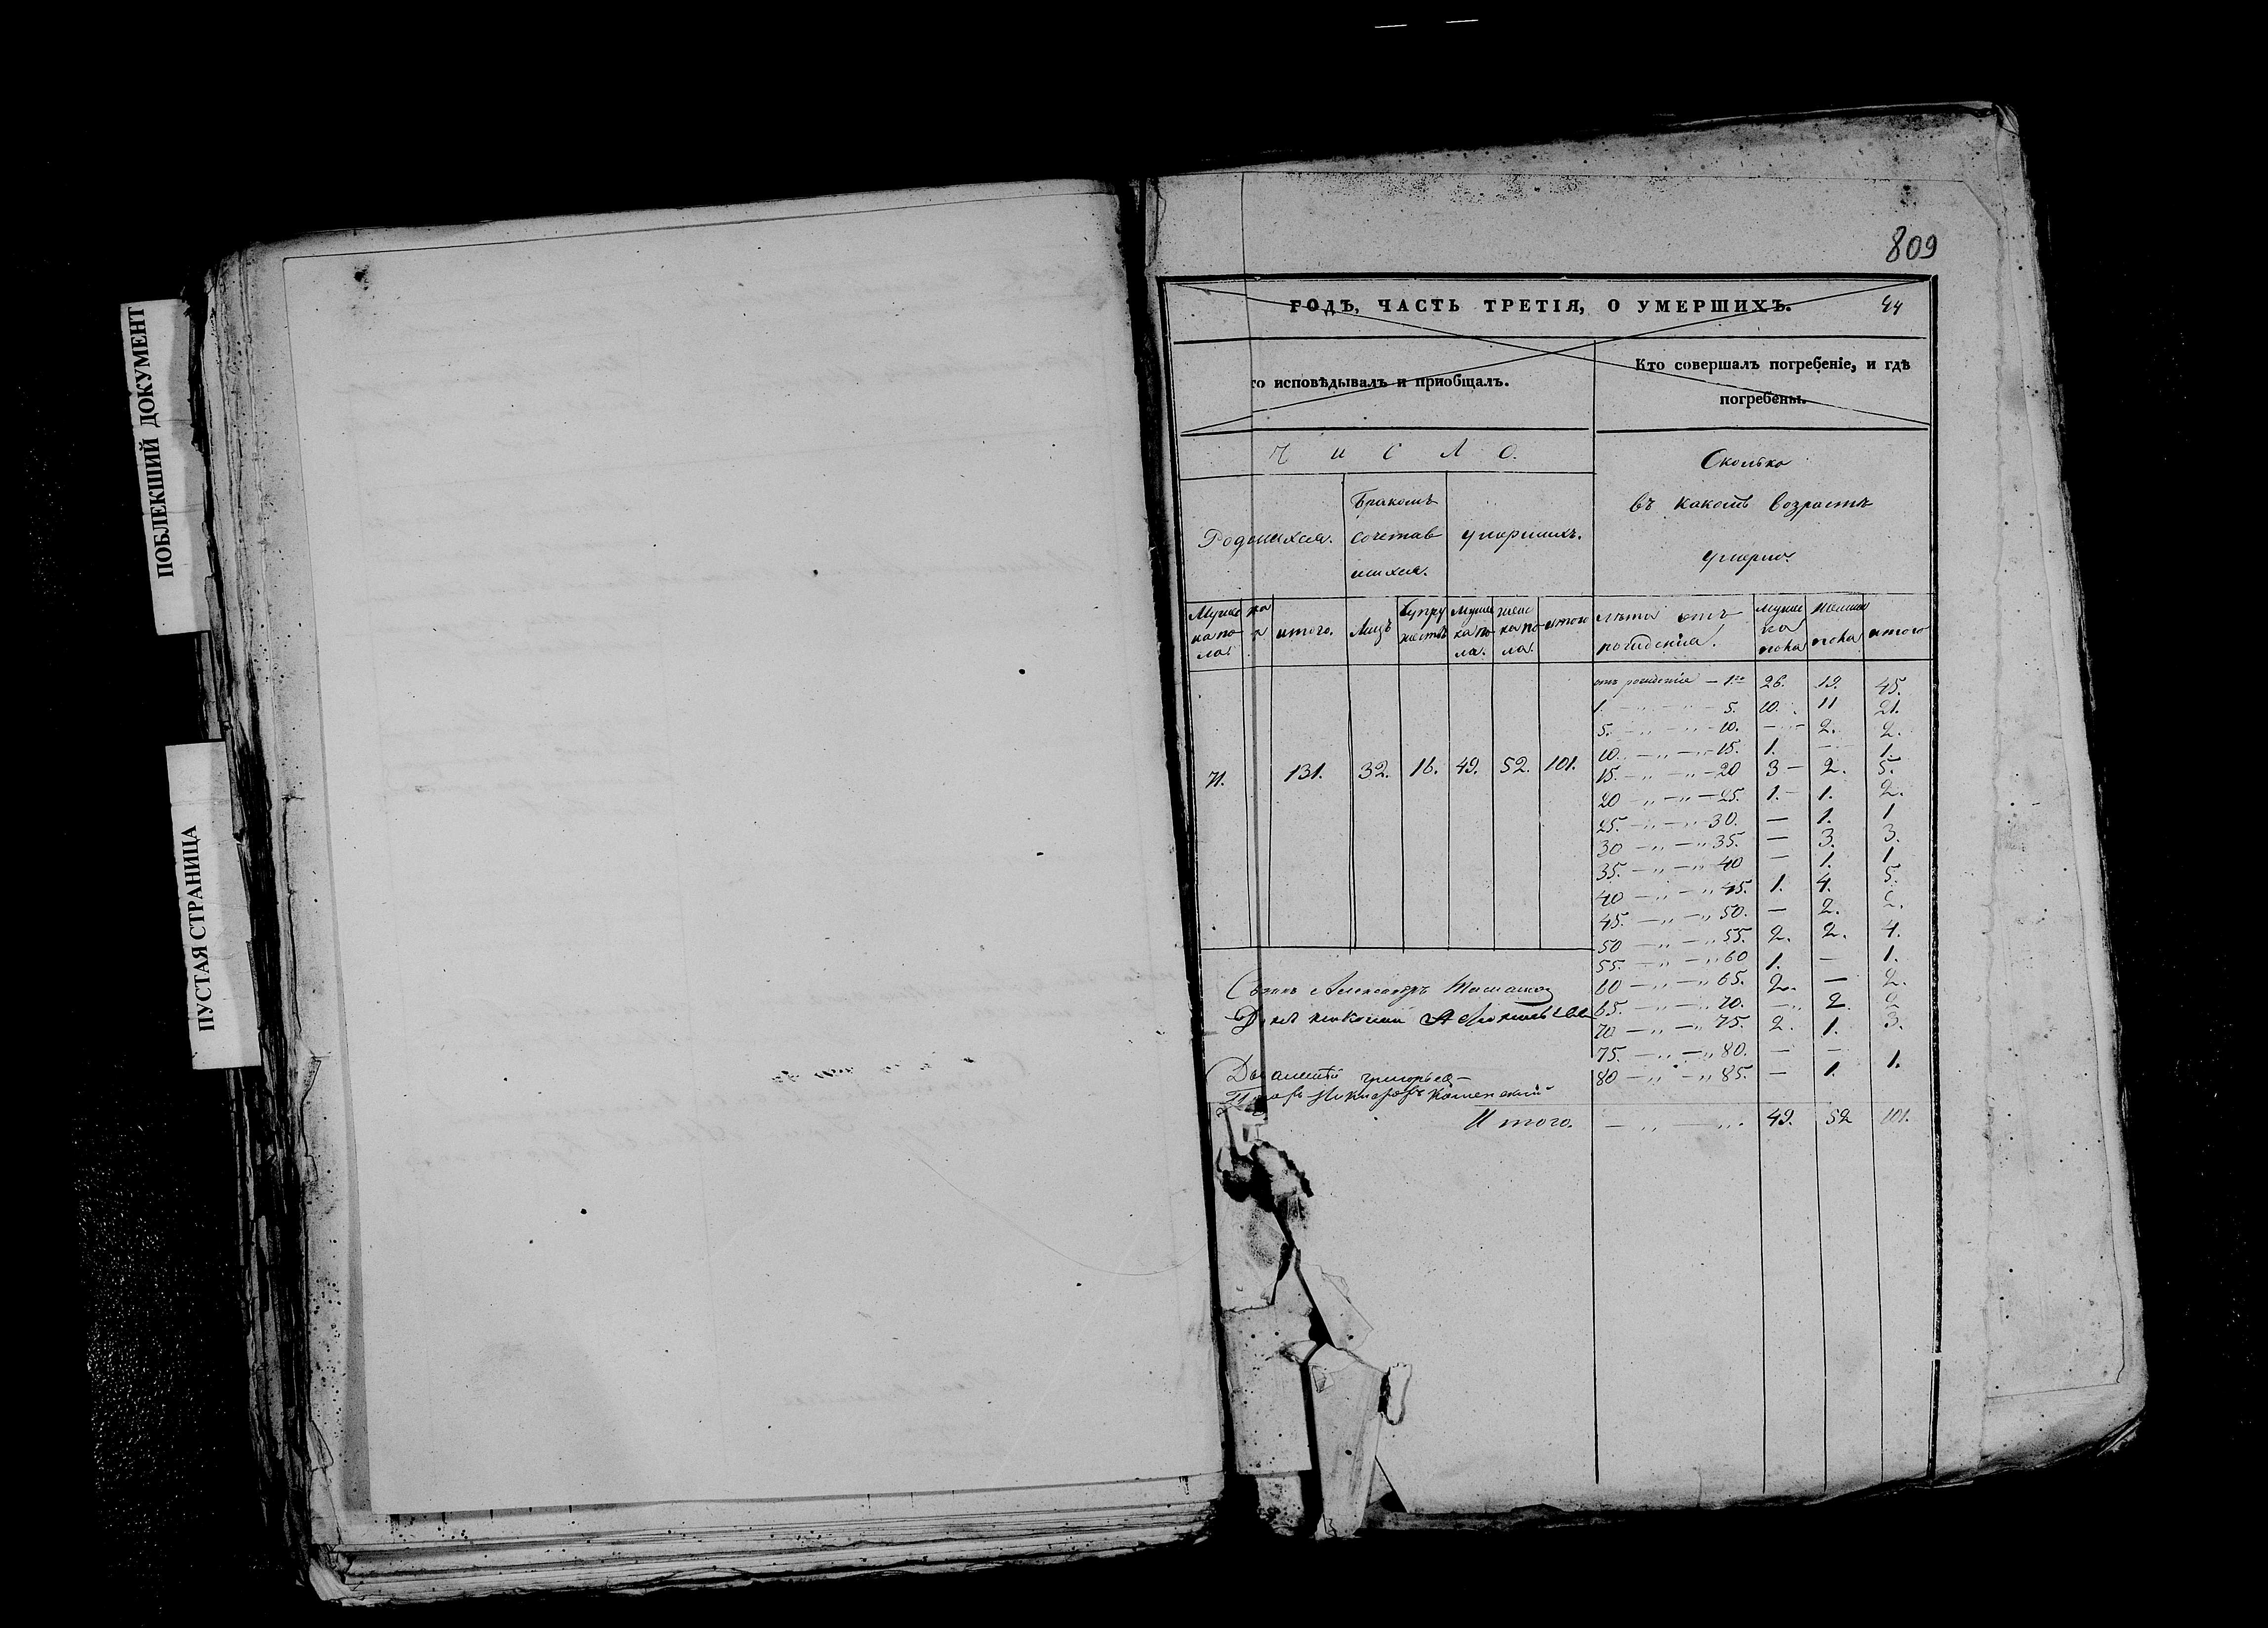 ПОБЛЕКШИЙ ДОКУМЕНТ
ПУСТАЯ СТРАНИЦА
809
ГОДЪ, ЧАСТЬ ТРЕТІЯ, О УМЕРШИХЪ. 44
то исповѣдывалъ и приобщалъ.
Кто совершалъ погребеніе, и гдѣ
погребены.
Число.
Родшихся.
Бракомъ
сочетав
шихся.
умершихъ.
Сколько
въ какомъ возрастѣ
умерло.
итого. Лицъ итого лѣта отъ итого
рожденія.
71. 131. 32. 16. 49. 52. 101.
отъ рожденія — 1го 26. 19. 45.
1. — „ — „ — 5. 10. 11 21.
5. — „ — „ — 10. — 2. 2.
10. — „ — „ — 15. 1. — 1.
15. — „ — „ — 20 3 — 2. 5.
20 — „ — „ — 25. 1. — 1. 2.
25. — „ — „ 30. — 1. 1
30 — „ — „ 35. — 3. 3.
35. — „ — „ 40 — 1. 1
40 — „ — „ 45. 1. 4. 5.
45. — „ — „ 50. — 2. 2.
50 — „ — „ 55. 2. 2. 4.
55. — „ — „ 60 1. — 1.
60 — „ — „ 65. 2. — 2.
65. — „ — „ 70. — 2 2
70 — „ — „ 75. 2. 1. 3.
75. — „ — „ 80. — —
80 — „ — „ 85. — 1. 1.
Александръ
Каменскій
Итого. — „ — „ 49. 52 101.